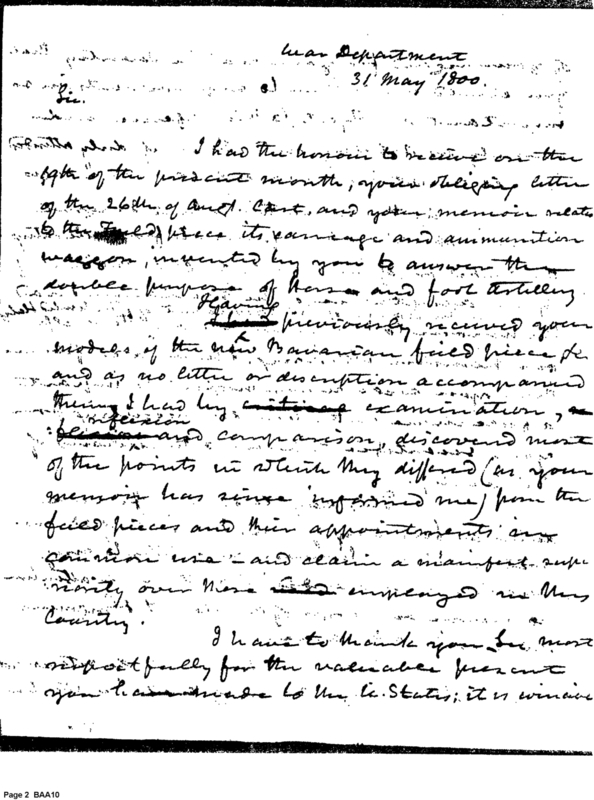 War Department
31 May 1800.
Sir.
I had the honour to receive on the
29th of the present month, your obliging letter
of the 26th of Augt. last, and your memoir relate
to the field piece its carriage and ammunition
waggon, invented by you to answer the
double purpose of Horse and foot Artillery
Having
I had previously received your
models of the new Bavarian field piece &c
and as no letter or discription accompanied
them, I had by critical examination, re
reflexion
flexion and comparison, discovered most
of the points in which they differed (as your
memoir has since informed me) from the
field pieces and their appointments in
common use – and claim a manifest supe
riority over those used employed in this
Country.
I have to thank you Sir, most
respectfully for the valuable present
you have made to the U. States; it is
Page 2 BAA10